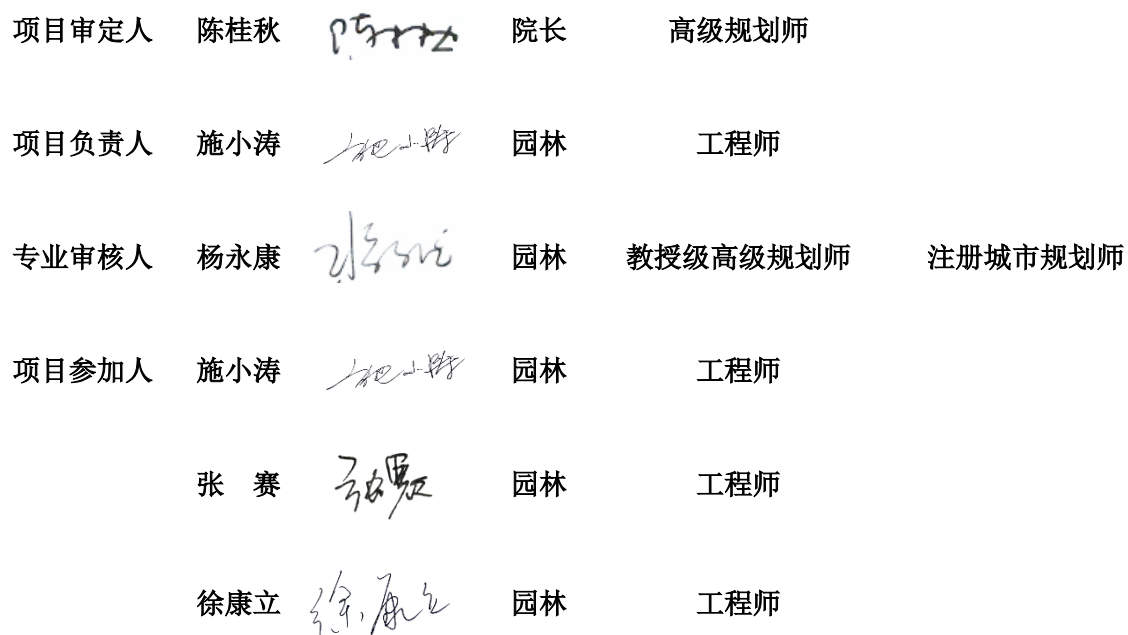 项目审定人 陈桂秋 院长 高级规划师
项目负责人 施小涛 园林 工程师
专业审核人 杨永康 园林 教授级高级规划师 注册城市规划师
项目参加人 施小涛 园林 工程师
张 赛 园林 工程师
徐康立 徐康立 园林 工程师